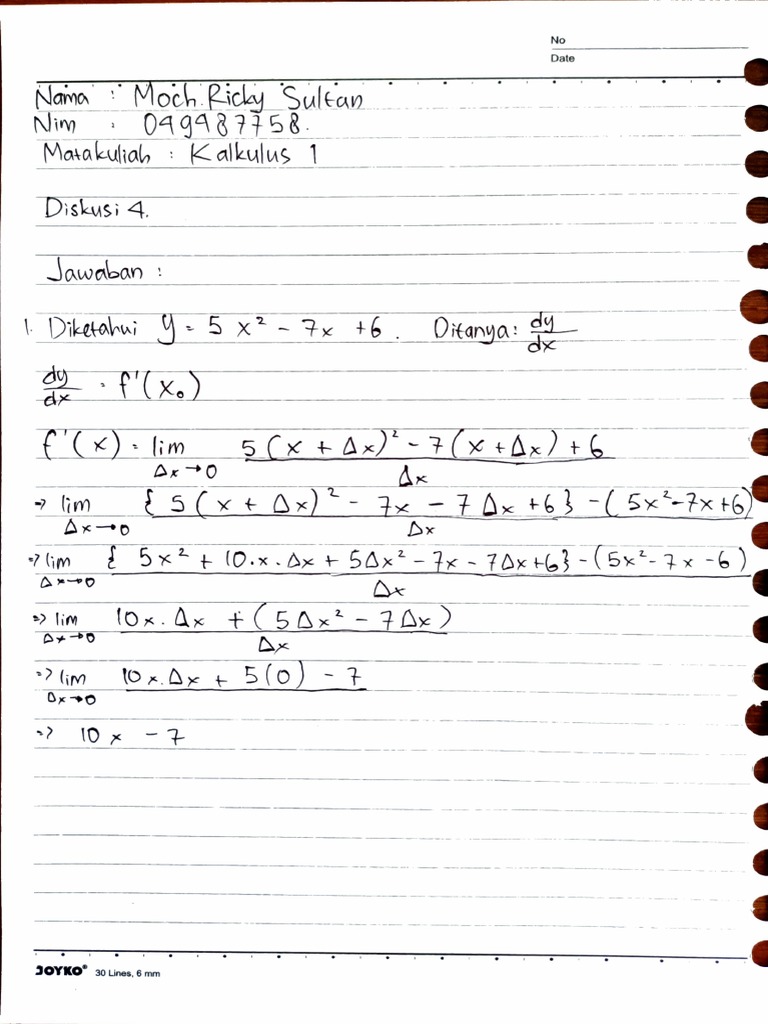 No
Date
Nama : Moch. Ricky Sultan
Nim : 049487758.
Matakuliah : Kalkulus 1
Diskusi 4.
Jawaban :
1. Diketahui y = 5x² - 7x + 6. Ditanya: dy/dx
dy/dx = f'(x₀)
f'(x) = lim Δx→0 5(x + Δx)² - 7(x + Δx) + 6 / Δx
=> lim Δx→0 {5(x + Δx)² - 7x - 7Δx + 6} - (5x² - 7x + 6) / Δx
=> lim Δx→0 {5x² + 10.x.Δx + 5Δx² - 7x - 7Δx + 6} - (5x² - 7x - 6) / Δx
=> lim Δx→0 10x.Δx + (5Δx² - 7Δx) / Δx
=> lim Δx→0 10x.Δx + 5(0) - 7
=> 10x - 7
JOYKO® 30 Lines, 6 mm